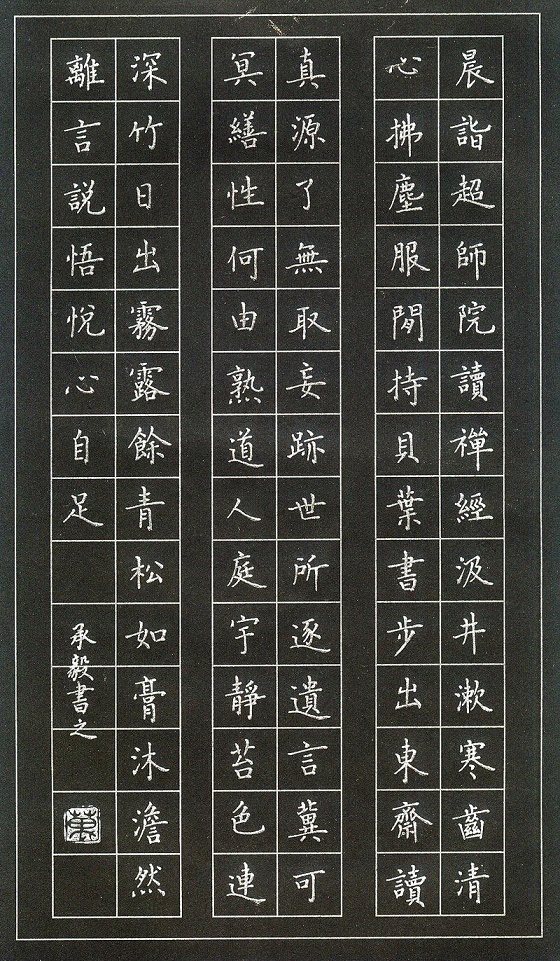 晨詣超師院讀禪經汲井漱寒齒清
心拂塵服閒持貝葉書步出東齋讀
真源了無取妄跡世所逐遺言冀可
冥繕性何由熟道人庭宇靜苔色連
深竹日出霧露餘青松如膏沐澹然
離言說悟悅心自足
承毅書之